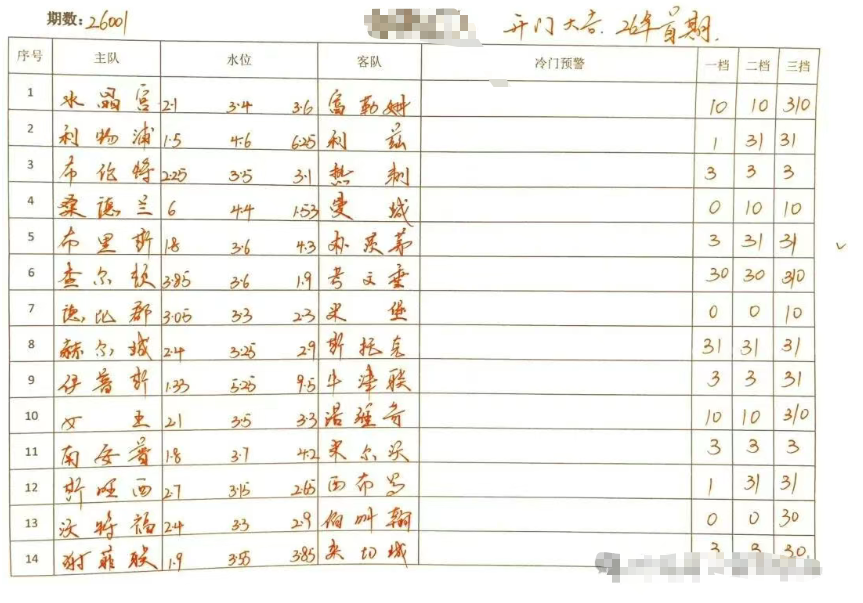 期数:26001 开门大吉. 26年首期.
序号 主队 水位 客队 冷门预警 一档 二档 三挡
1 水晶宫 2.1 3.4 3.6 富勒姆 10 10 310
2 利物浦 1.5 4.6 6.25 利兹 1 31 31
3 布伦特 2.25 3.5 3.1 热刺 3 3 3
4 桑德兰 6 4.4 1.53 曼城 0 10 10
5 布里斯 1.8 3.6 4.3 朴茨茅 3 31 31
6 查尔顿 3.85 3.6 1.9 考文垂 30 30 310
7 德比郡 3.05 3.3 2.3 米堡 0 0 10
8 赫尔城 2.4 3.25 2.9 斯托克 31 31 31
9 伊普斯 1.33 5.25 9.5 牛津联 3 3 31
10 女王 2.1 3.5 3.3 诺维奇 10 10 310
11 南安普 1.8 3.7 4.2 米尔沃 3 3 3
12 斯旺西 2.7 3.15 2.65 西布罗 1 31 31
13 沃特福 2.4 3.3 2.9 伯明翰 0 0 30
14 谢菲联 1.9 3.55 3.85 莱切城 3 3 30